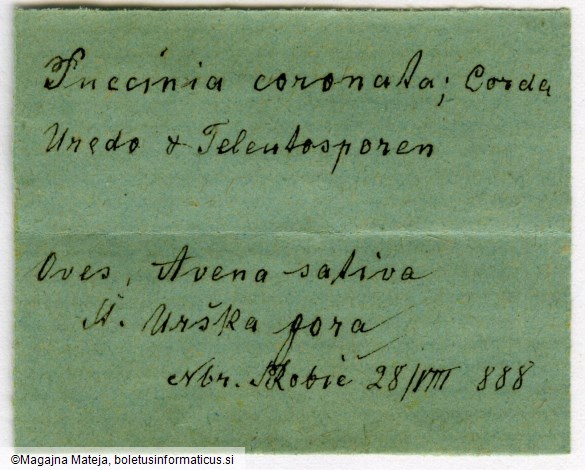 Puccinia coronata; Corda
Uredo & Teleutosporen
Oves, Avena sativa
Urška gora
Nbr. Robič 28/VIII 888
©Magajna Mateja, boletusinformaticus.si